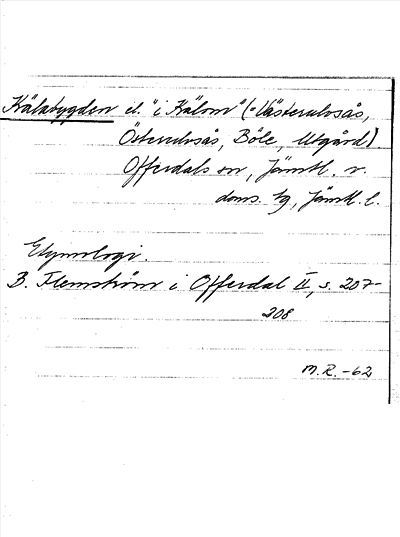 Kälabygden el. "i Kälom" (= Västerulvsås,
Österulvsås, Böle, Utgård)
Offerdals sn, Jämtl. v.
doms. tg, Jämtl. l.
Etymologi.
B. Flemström i Offerdal II, s. 207-
208
M.R. -62